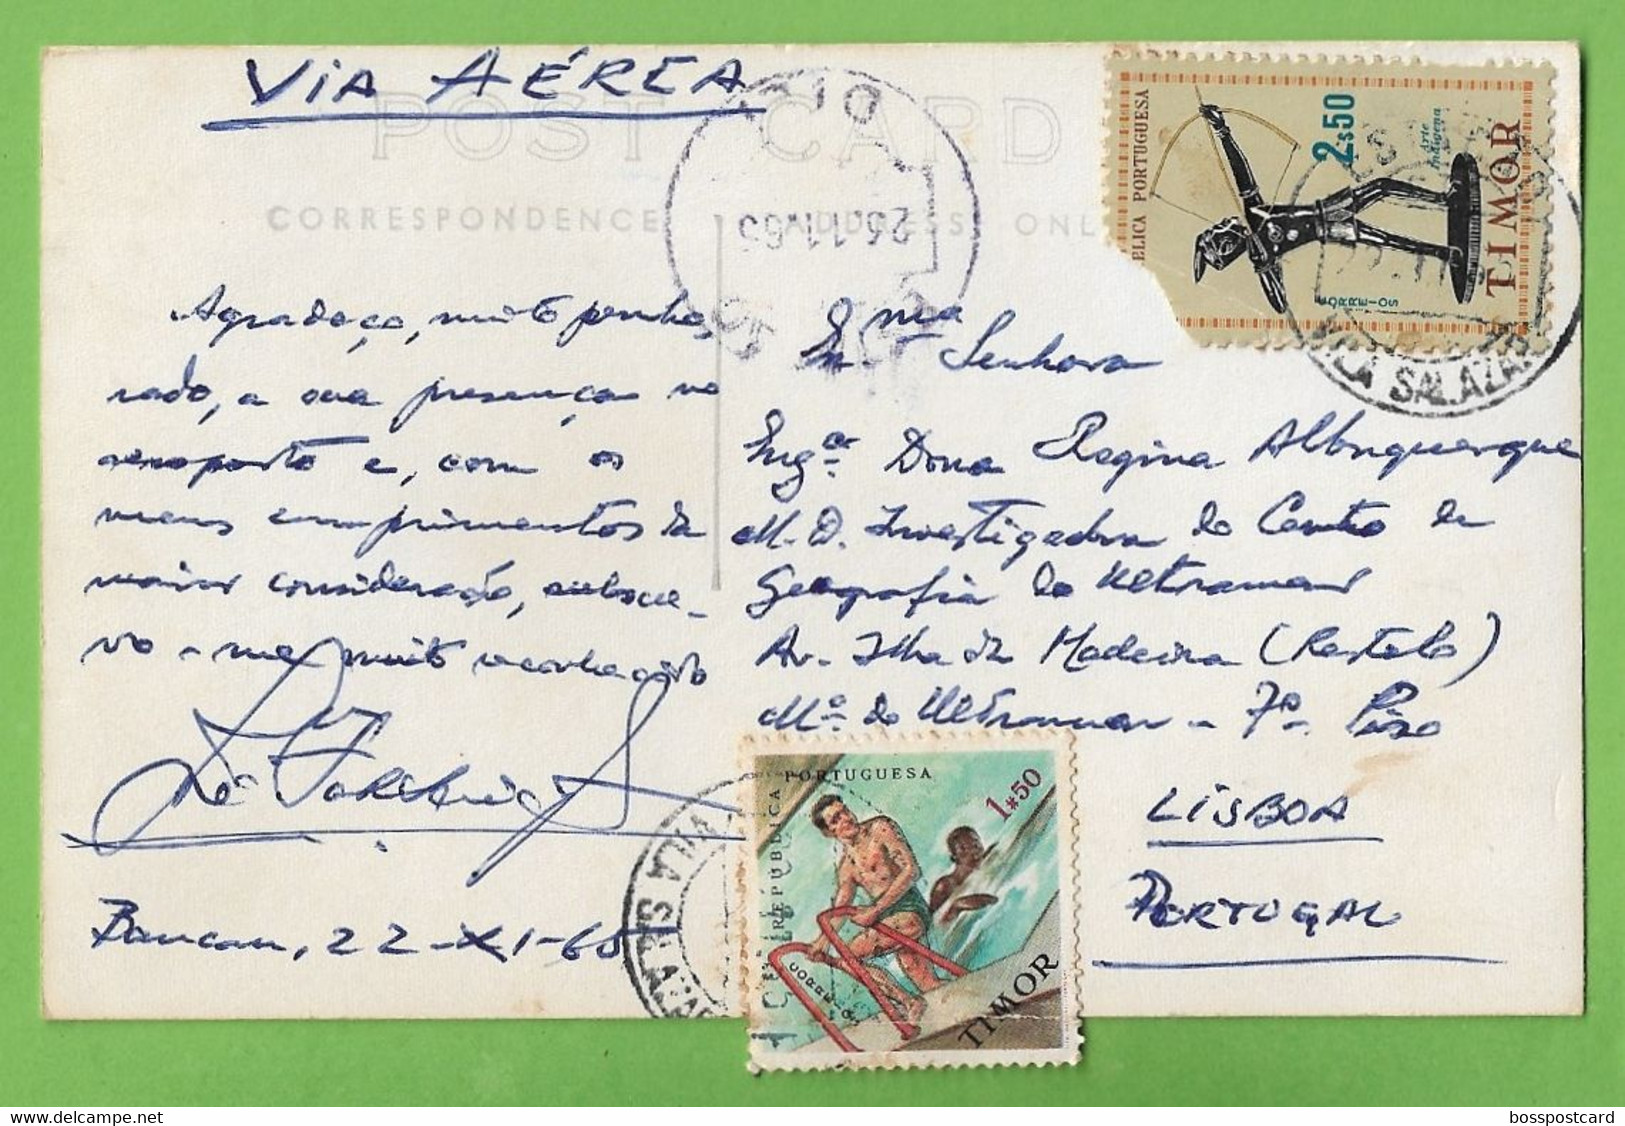 VIA AÉREA
POST CARD
CORRESPONDENCE
ADDRESS ONL
DILI
26.11.65
Agradeço, muito penho,
rado, a sua presença no
aeroporto e, com os
meus cumprimentos da
maior consideração, subscre-
vo-me muito reconhecido
Baucau, 22-XI-65
Exma
Senhora
Engª Dona Regina Albuquerque
M. D. Investigadora do Centro de
Geografia do Ultramar
Av. Ilha da Madeira (Restelo)
Mº do Ultramar - 7º Piso
LISBOA
PORTUGAL
ELICA PORTUGUESA
2$50
Arte Indígena
CORREIOS
TIMOR
VILA SALAZAR
REPÚBLICA PORTUGUESA
1$50
CORREIOS
TIMOR
VILA SALAZAR
https://www.delcampe.net
bosspostcard